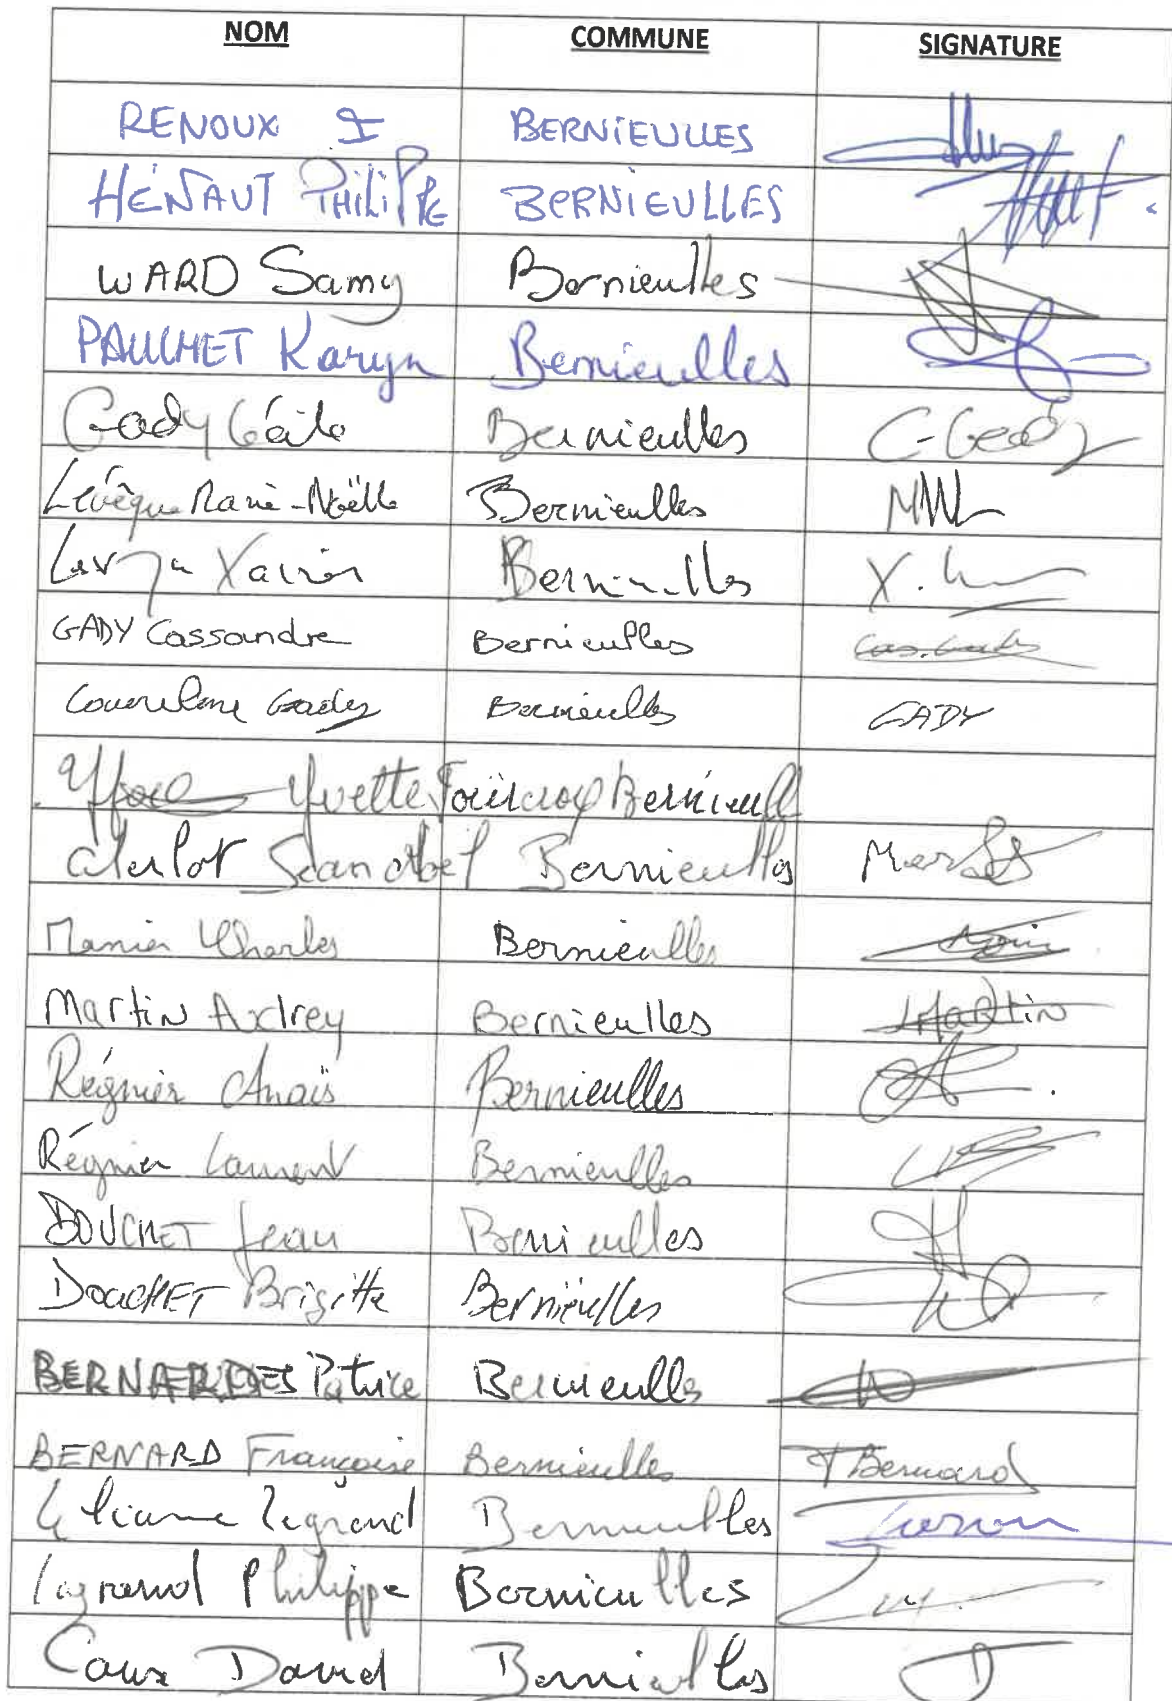 NOM COMMUNE SIGNATURE
RENOUX I BERNIEULLES
HÉNAUT PHILIPPE BERNIEULLES
WARD Samy Bernieulles
PAUCHET Karyn Bernieulles
Gady Cécile Bernieulles C-Gady
Levêque Marie-Noëlle Bernieulles MNL
Xavier Bernieulles X.
GADY Cassandre Bernieulles Cas.Gady
Gady Bernieulles GADY
Yvette Fourcroy Bernieull
Merlot Jean Abel Bernieulles Merlot
Manier Charles Bernieulles
Martin Audrey Bernieulles Martin
Régnier Anaïs Bernieulles
Régnier Laurent Bernieulles
DOUCHET Jean Bernieulles
DOUCHET Brigitte Bernieulles
BERNARD Patrice Bernieulles
BERNARD Françoise Bernieulles F Bernard
Liliane Legrand Bernieulles
Legrand Philippe Bernieulles
Caux David Bernieulles